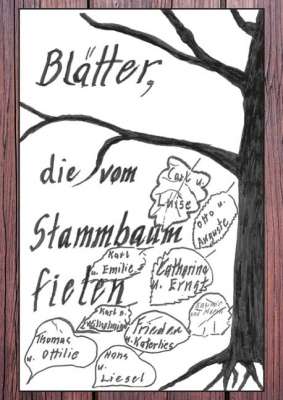 Blätter,
die vom
Stammbaum
fielen
Carl u.
Luise
Otto u.
Auguste
Karl
u. Emilie
Catharina
u. Ernst
Karl u.
Wilhelmine
Frieder
u. Katerlies
und
Thomas
u.
Ottilie
Hans
u.
Liesel